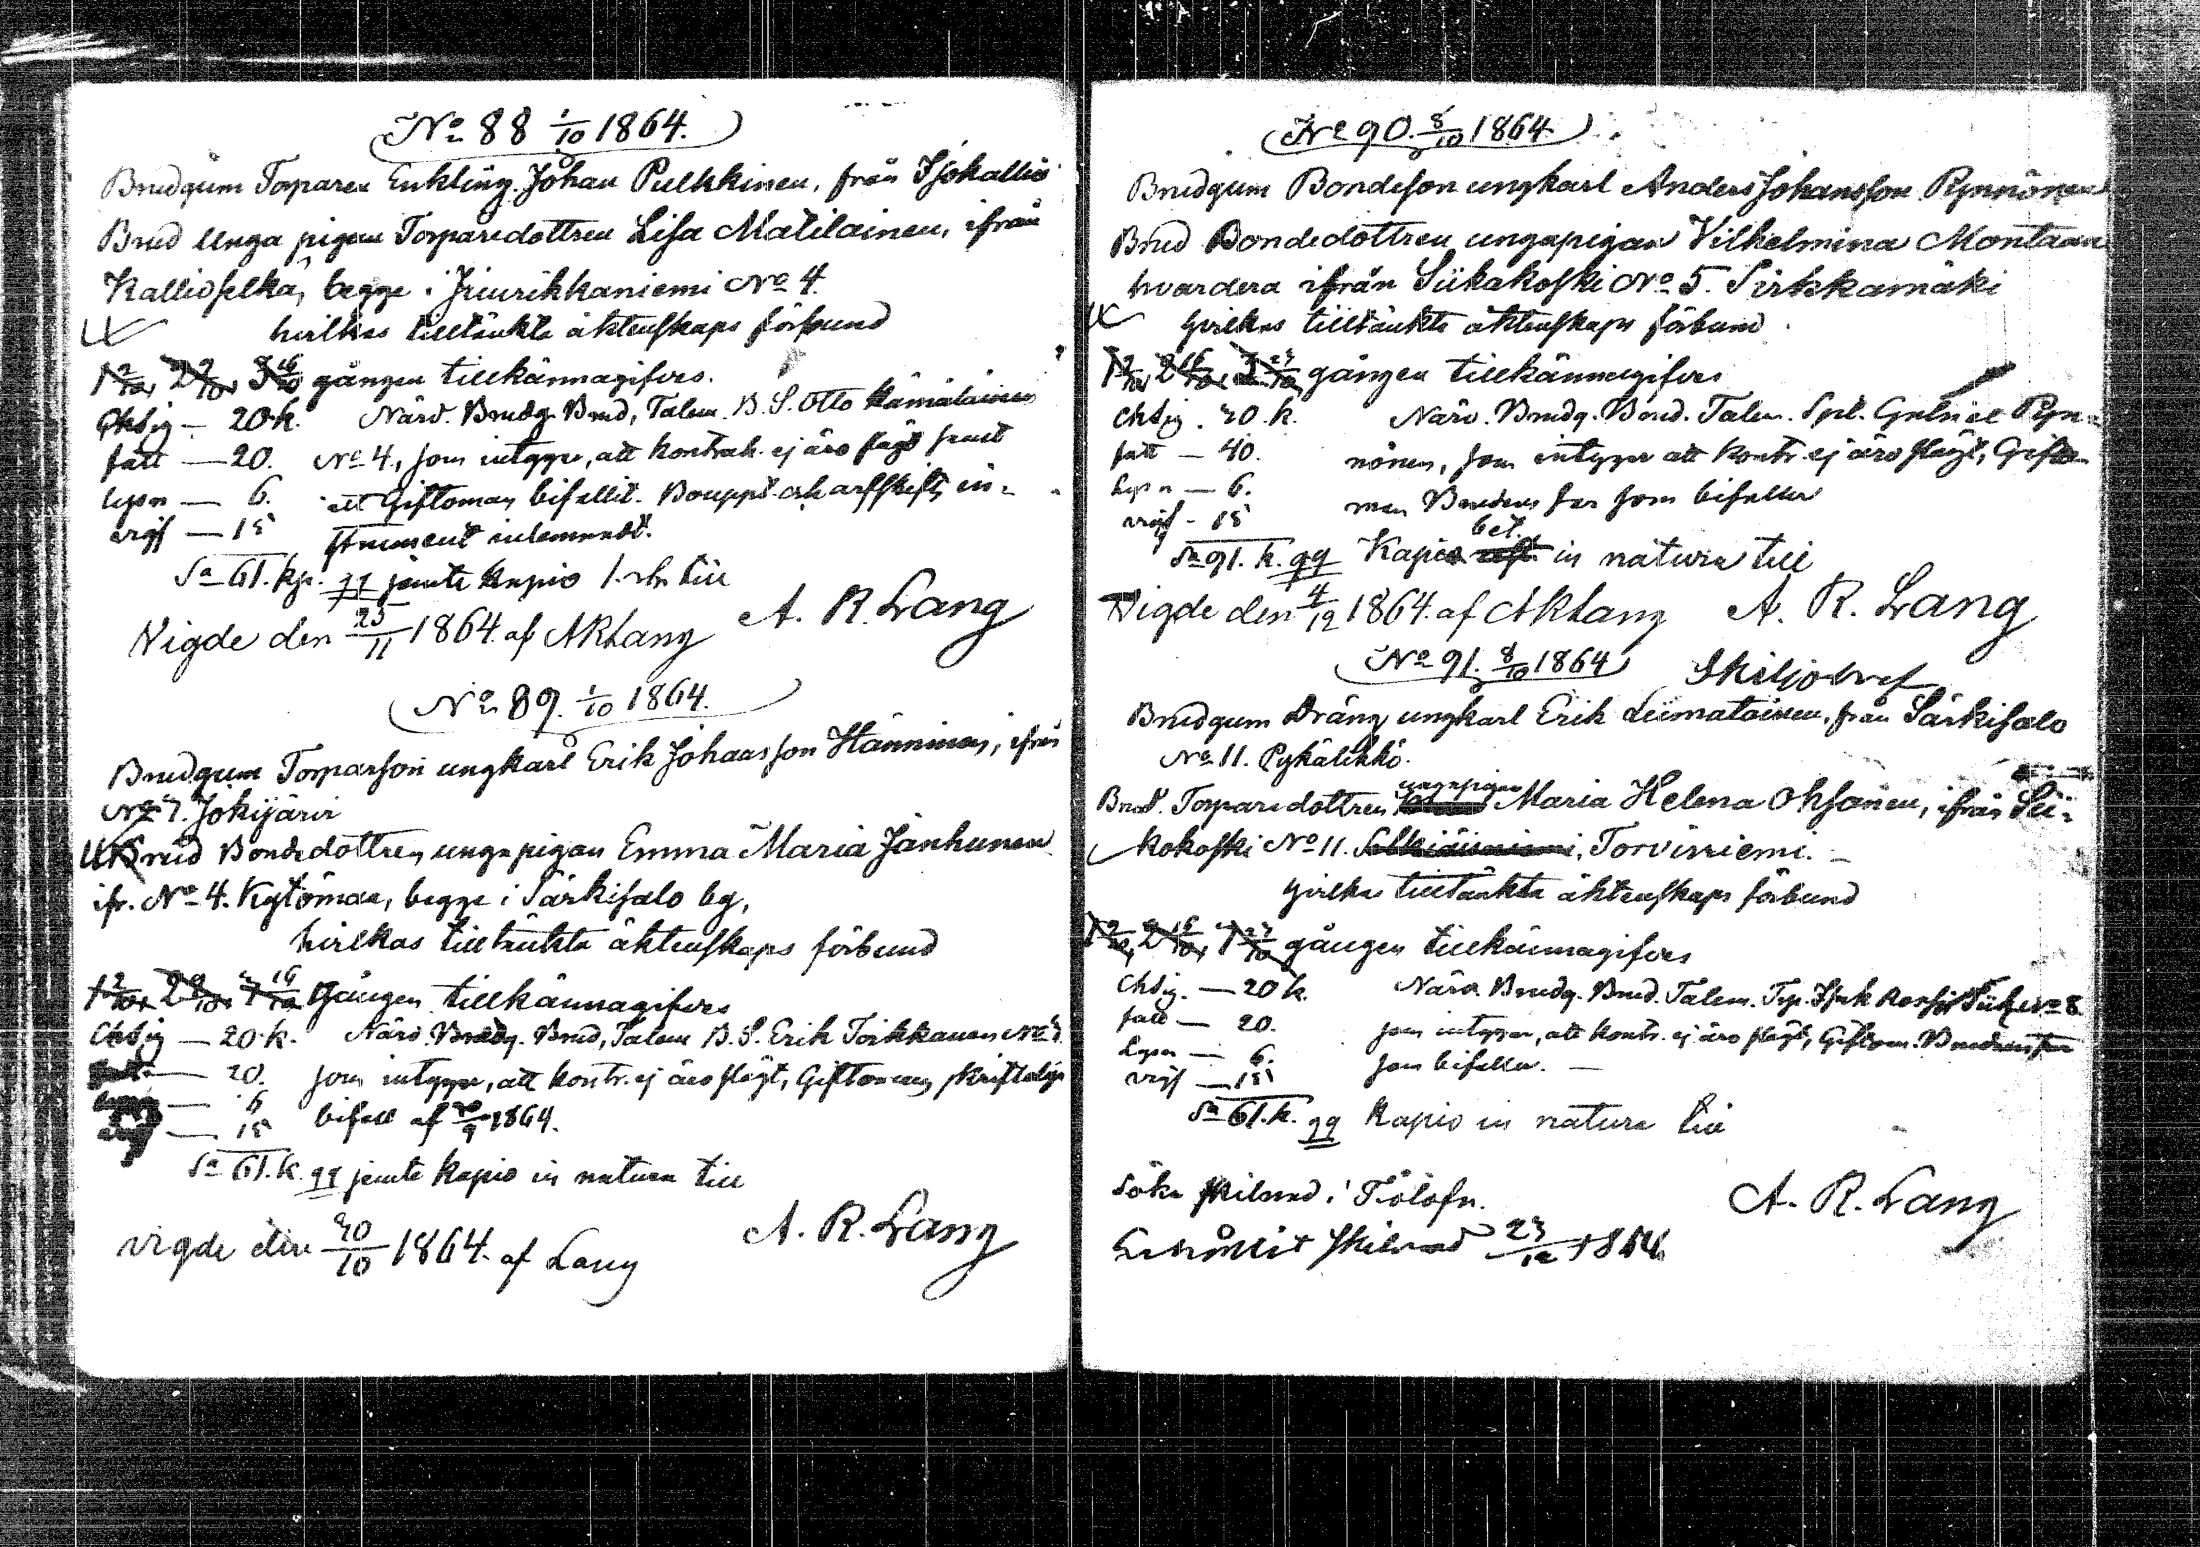 No 88 1/10 1864.
Brudgum Torparen Enkling Johan Pulkkinen, från Isokallio
Brud Unga pigan Torparedottren Lisa Matilainen, ifrån
Kallioselkä, begge i Hinrikkaniemi No 4.
hvilkas tilltänkta äktenskaps förbund
1 2/10, 2 9/10, 3 16/10 gången tillkännagifves.
Chtsig — 20 k. Närv. Brudg. Brud, Talem. B. S. Otto Hämäläinen
fatt — 20. No 4, som intygar, att kontrah. ej äro slägt samt
lysn — 6. att Giftoman bifallit. Bouppt. och arfskifts in-
vigs — 15 strument inlemnadt.
Sa 61. kp. gg jemte kapio 1. rbr till
A. R. Lang
Vigde den 25/11 1864. af ARLang
No 89. 1/10 1864.
Brudgum Torparson ungkarl Erik Johansson Hänninen, ifrån
No 7. Jokijärvi
Brud Bondedottren unga pigan Emma Maria Janhunen
ifr. No 4. Kytömaa, begge i Särkisalo by,
hvilkas tilltänkta äktenskaps förbund
1 2/10, 2 9/10, 3 16/10 Gången tillkännagifves
Chtsig — 20 k. Närv. Brudg. Brud, Talem B. S. Erik Torkkanen No 7
20. som intygar, att kontr. ej äro slägt, Giftomans skriftelige
6 bifall af 30/9 1864.
15
Sa 61. k. gg jemte kapio in natura till
A. R. Lang
vigde den 30/10 1864. af Lang
No 90. 8/10 1864.
Brudgum Bondeson ungkarl Anders Johansson Rynnönen
Brud Bondedottren ungapigan Vilhelmina Montaan
hvardera ifrån Siikakoski No 5. Sirkkamäki
hvilkas tilltänkta äktenskaps förbund
1 9/10, 2 16/10, 3 23/10 gången tillkännagifves
Chtsig. 30 k. Närv. Brudg. Brud. Talem. Spl. Gabriel Ryn-
fatt — 40. nönen, som intygar att kontr. ej äro slägt, Gifto-
Lysn — 6. man Brudens far som bifaller
vigs - 15 bet.
Sa 91. k. gg Kapio in natura till
Vigde den 4/12 1864. af ARLang A. R. Lang
No 91. 8/10 1864 Skiljobref
Brudgum Dräng ungkarl Erik Liimatainen, från Särkisalo
No 11. Pykälikkö.
ungapigan
Brud. Torparedottren Maria Helena Oksanen, ifrån Sii-
kakoski No 11. Torviniemi. —
hvilkas tilltänkta äktenskaps förbund
1 9/10, 2 16/10, 3 23/10 gången tillkännagifves
Chtsig. — 20 k. Närv. Brudg. Brud. Talem. Trp. Isak
fatt — 20. som intygar, att kontr. ej äro slägt, Giftom. Brudens far
Lysn — 6. som bifaller. —
vigs — 15
Sa 61. k. gg Kapio in natura till
A. R. Lang
söka skilnad i
skilnad 23/12 1864